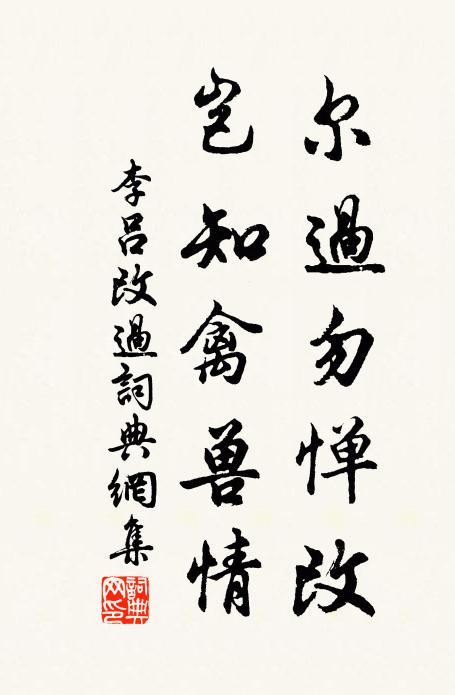 尔過勿惮改
岂知禽兽情
李吕改過詞典網集
詞典网印